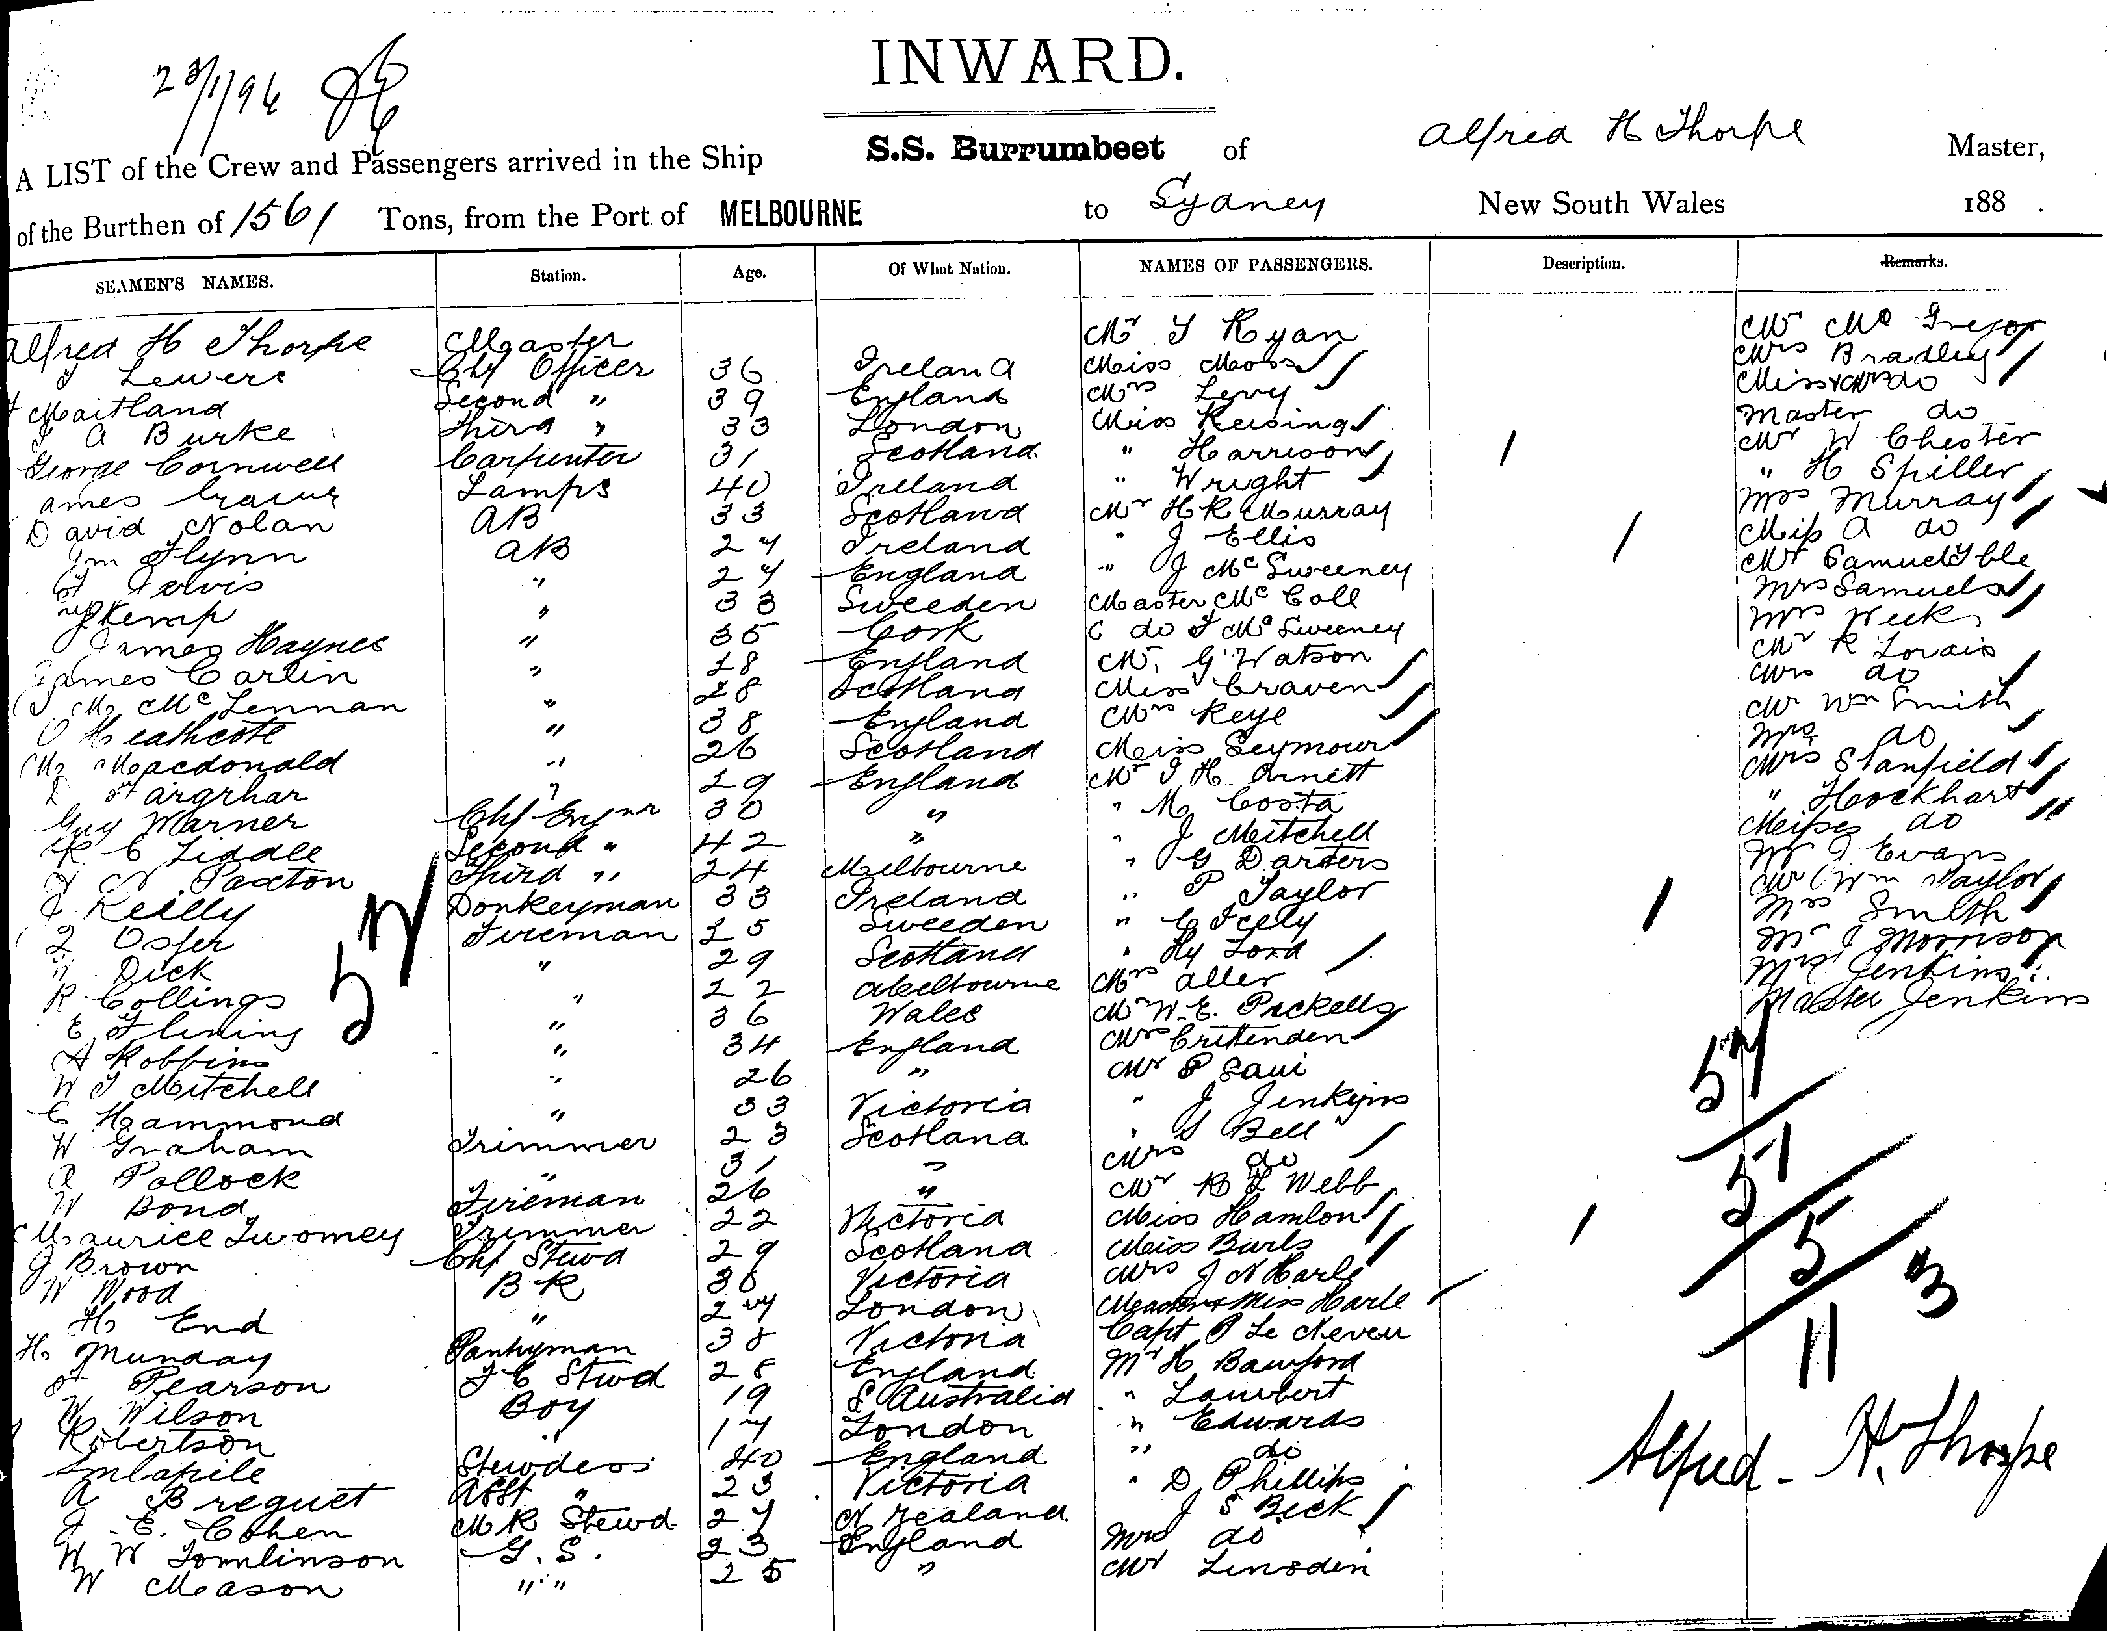 INWARD.
23/1/96
A LIST of the Crew and Passengers arrived in the Ship S.S. Burrumbeet of Alfred H Thorpe Master,
of the Burthen of 1561 Tons, from the Port of MELBOURNE to Sydney New South Wales 188 .
SEAMEN'S NAMES. Station. Age. Of What Nation. NAMES OF PASSENGERS. Description. Remarks.
Alfred H Thorpe Master Mr T Ryan Mr Mc Gregor
Lewers Chf Officer 36 Ireland Miss Moss Mrs Bradley
Maitland Second " 39 England Mrs Levy Miss do
A Burke Third " 33 London Miss Reising Master do
George Cornwell Carpenter 31 Scotland " Harrison Mr W Chester
ames Lamps 40 Ireland " Wright " H Spiller
David Nolan AB 33 Scotland Mr H R Murray Mrs Murray
Flynn AB 27 Ireland " J Ellis Miss A do
Jervis " 27 England " J McSweeney Mr Samuel
Kemp " 33 Sweeden Master McColl Mrs Samuels
James Haynes " 35 Cork do McSweeney Mrs Week
James Carlin " 28 England Mr. G Watson Mr R Lorais
McLennan " 28 Scotland Miss Craven Mrs do
Heathcote " 38 England Mrs Keye Mr Wm Smith
Macdonald " 26 Scotland Miss Seymour Mrs do
" 29 England Mr Arnett Mrs Stanfield
Guy Warner Chf Engnr 30 " " M Costa " Hockhart
C Liddle Second " 42 " " J Mitchell Misses do
Paxton Third " 24 Melbourne " G Darters Mr J Evans
J Reilly Donkeyman 33 Ireland " P Taylor Mr Wm Taylor
Osfer Fireman 25 Sweeden " C Feely Mrs Smith
Dick " 29 Scotland " Hy Lord Mr J Morrison
R Collings " 22 Melbourne Mrs Aller Mrs Jenkins
E Fleming " 36 Wales Mr W. E. Pickells Master Jenkins
A Robbins " 34 England Mrs Crittenden
W J Mitchell " 26 " Mr P Saui
C Hammond " 33 Victoria " J Jenkyns
W Graham Trimmer 23 Scotland " Bell
Pollock " 31 " Mrs do
W Bond Fireman 26 " Mr Webb
Maurice Twomey Trimmer 22 Victoria Miss Hamlon
J Brown Chf Stewd 29 Scotland Miss Burls
W Wood BR 38 Victoria Mrs J N Harle
H End " 27 London Master & Miss Harle
H. Munday Pantryman 38 Victoria Capt P Le Neveu
Pearson F C Stwd 28 England Mr H Bamford
Wilson Boy 19 S Australia " Lambert
Robertson 17 London " Edwards
Stewdess 40 England " do
A Breguet Asst " 23 Victoria " D Phillips
J. E. Cohen M R Stewd 27 N Zealand J S Bick
W W Tomlinson G. S. 23 England Mrs do
W Meason " " 25 " Mr Linsden
57
57
51
5
11
3
Alfred - H. Thorpe